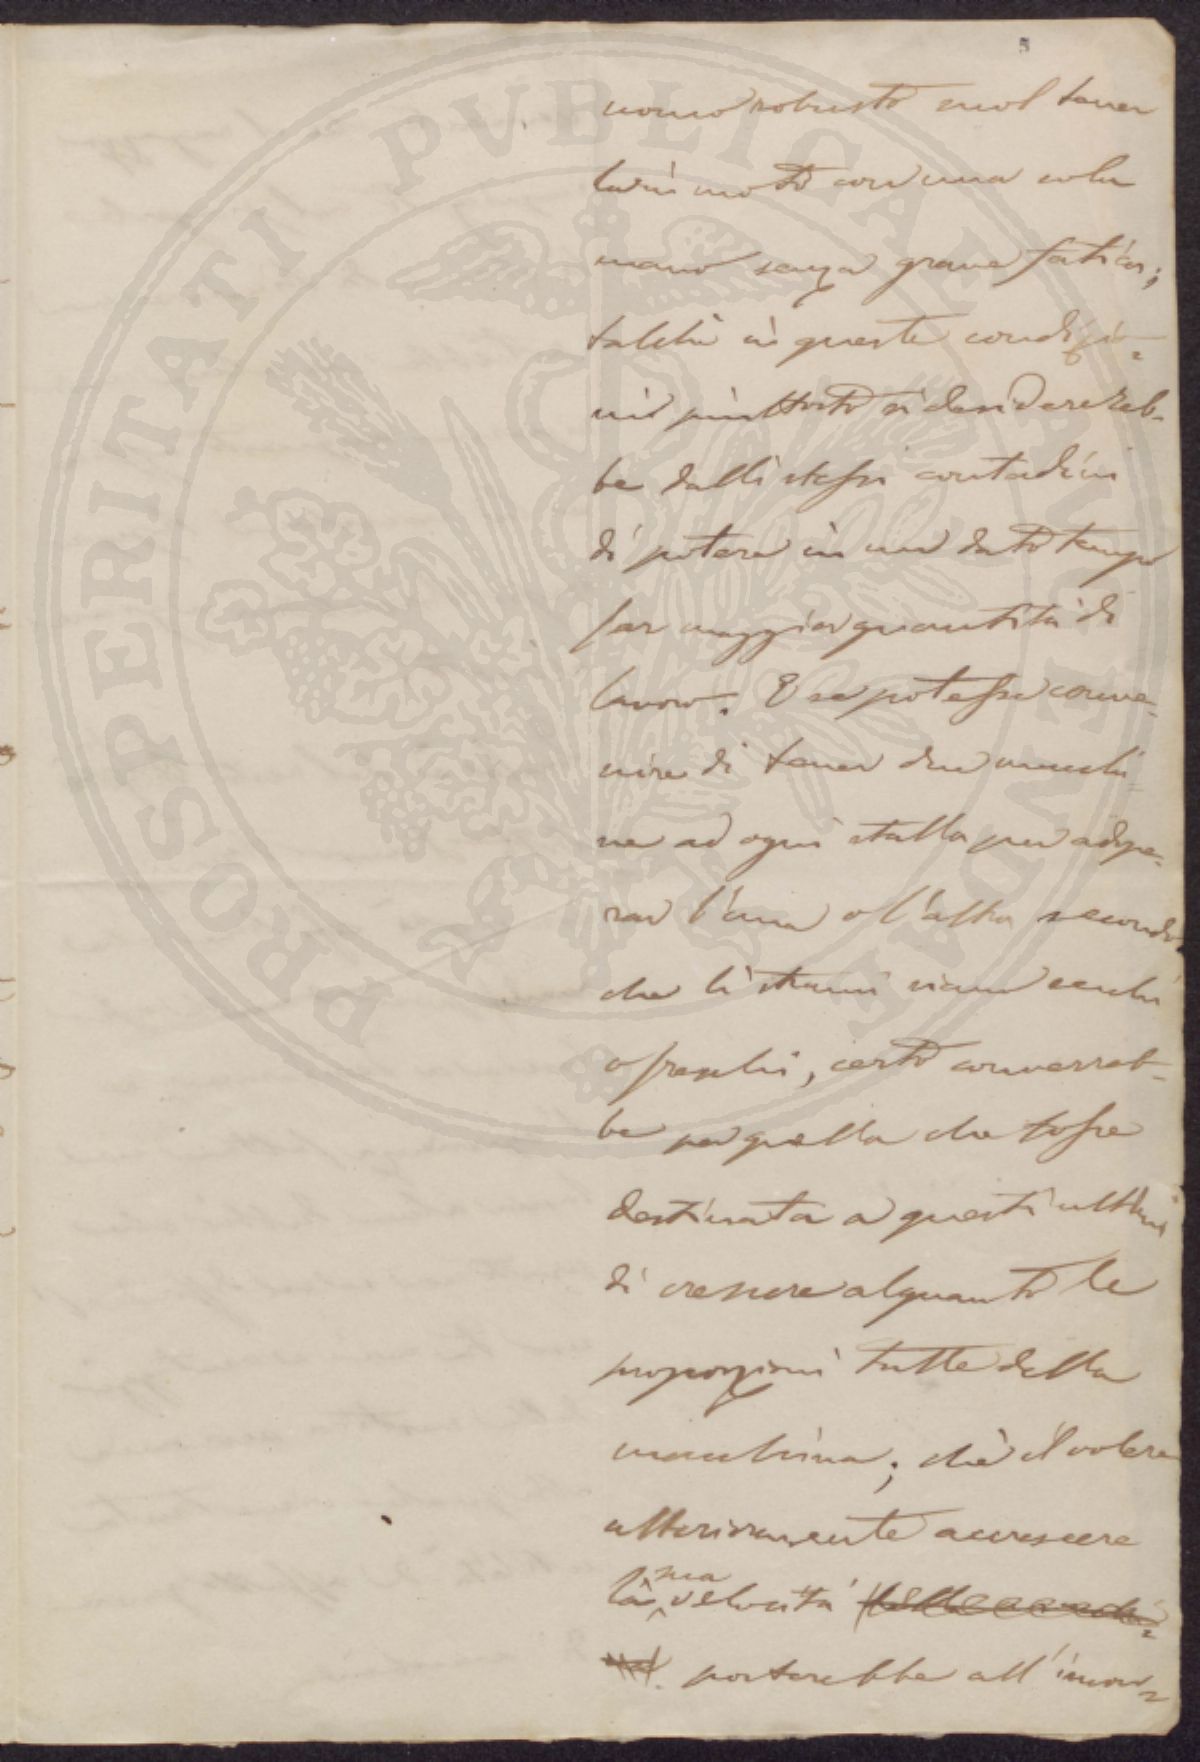 5
uomo robusto suol tener
la in moto con una sola
mano senza grave fatica;
talchè in queste condizio=
ni piuttosto si desiderereb=
be dalli stessi contadini
di potere in un dato tempo
far maggior quantità di
lavoro. E se potesse conve=
nire di tener due macchi=
ne ad ogni stalla per adope=
rar l'una o l'altra secondo
che li strami siano secchi
o freschi, certo converreb=
be per quella che fosse
destinata a questi ultimi
di crescere alquanto le
proporzioni tutte della
macchina; chè il volere
ulteriormente accrescere
sua
la velocità della macchi=
na porterebbe all'incon=
PROSPERITATI PVBLICAE AVGENDAE